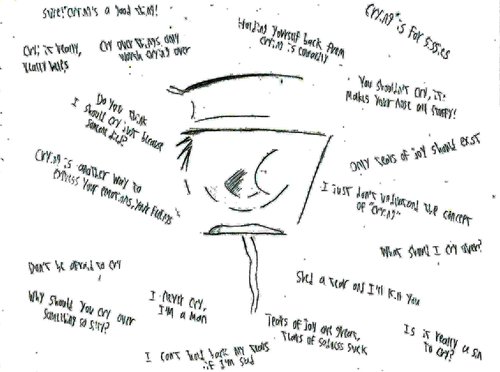 Sure! Crying's a good thing!
Crying is for sissies
Holding yourself back from
crying is cowardly
Cry, it really,
really helps
Cry over things only
worth crying over
You shouldn't cry, it
makes your nose all snotty!
Do you think
I should cry just because
someone died?
Only tears of joy should exist
Crying is another way to
express your emotions, your feelings
I just don't understand the concept
of "crying"
What should I cry over?
Don't be afraid to cry
Shed a tear and I'll kill you
Why should you cry over
something so silly?
I never cry,
I'm a man
Tears of joy are great,
tears of sadness suck
Is it really a sin
to cry?
I can't hold back my tears
if I'm sad